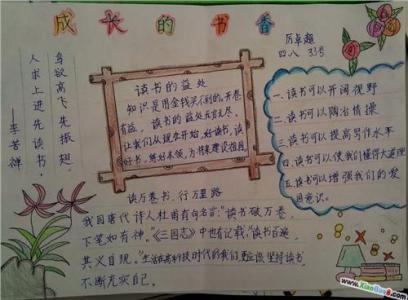 成长的书香
厉卓超
四八 33号
鸟欲高飞先振翅
人求上进先读书.
——李苦禅
读书的益处
知识是用金钱买不到的。开卷
有益，读书的益处是言无尽，
让我们从现在开始，好读书，读
好书，练好本领，为将来建设祖国
一、读书可以开阔视野
二、读书可以陶冶情操
三、读书可以提高写作水平
四、读书可以使我们懂得大道理
五、读书可以增强我们的爱
国意识。
读万卷书，行万里路
我国唐代诗人杜甫有句名言："读书破万卷，
下笔如有神。"《三国志》中也有记载"读书百遍，
其义自现。"生活在高科技时代的我们更应该坚持读书
不断充实自己。